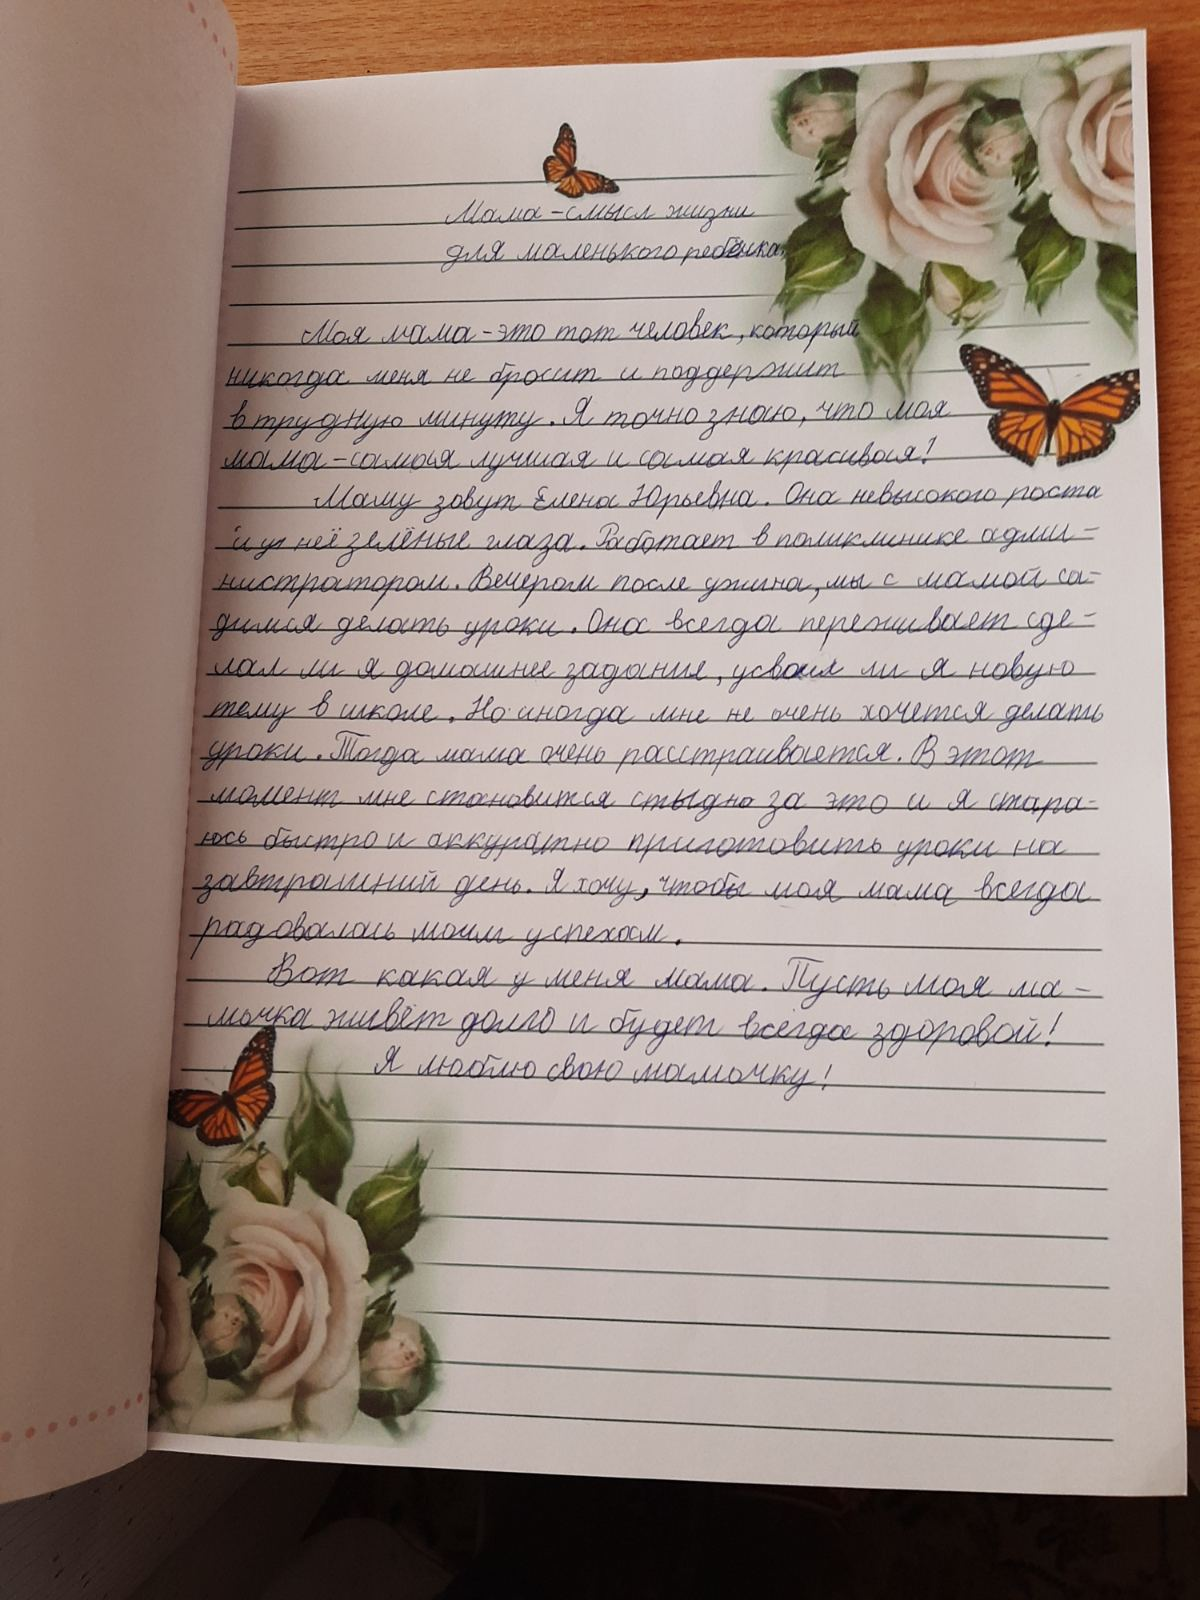 Мама-смысл жизни
для маленького ребёнка.
Моя мама-это тот человек, который
никогда меня не бросит и поддержит
в трудную минуту. Я точно знаю, что моя
мама-самая лучшая и самая красивая!
Маму зовут Елена Юрьевна. Она невысокого роста
и у неё зелёные глаза. Работает в поликлинике адми-
нистратором. Вечером после ужина, мы с мамой са-
димся делать уроки. Она всегда переживает сде-
лал ли я домашнее задание, усвоил ли я новую
тему в школе. Но иногда мне не очень хочется делать
уроки. Тогда мама очень расстраивается. В этот
момент мне становится стыдно за это и я стара-
юсь быстро и аккуратно приготовить уроки на
завтрашний день. Я хочу, чтобы моя мама всегда
радовалась моим успехам.
Вот какая у меня мама. Пусть моя ма-
мочка живёт долго и будет всегда здоровой!
Я люблю свою мамочку!